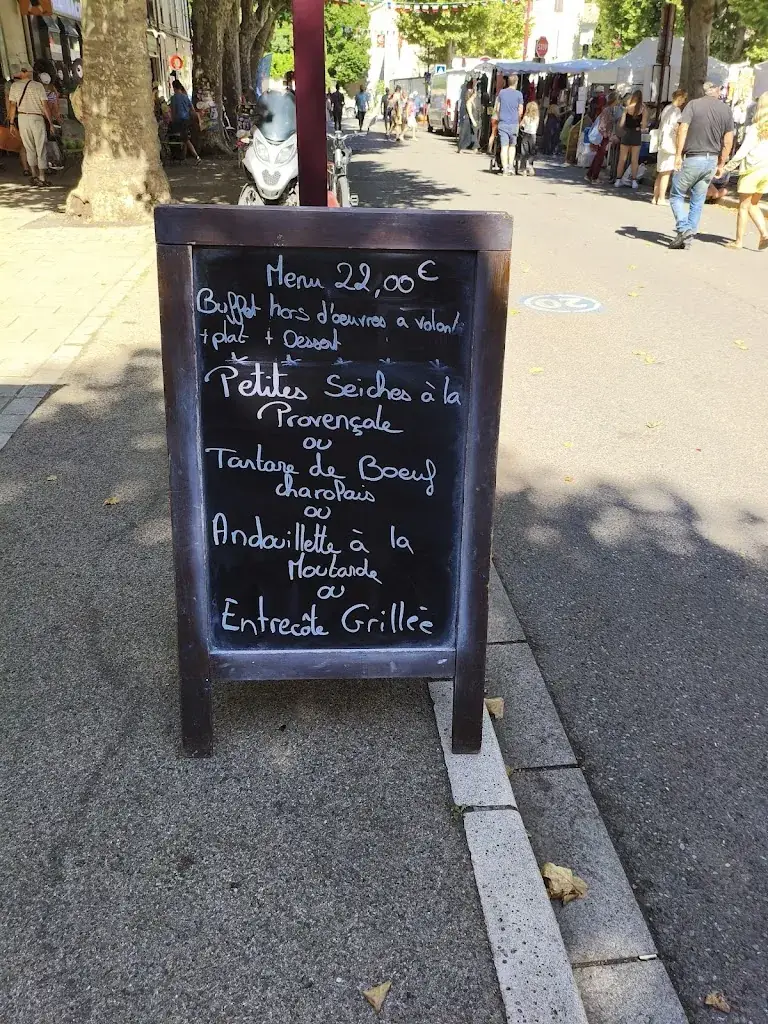 Menu 22,00€
Buffet hors d'œuvres à volont
+ plat + Dessert
Petites Seiches à la
Provençale
ou
Tartare de Boeuf
charolais
ou
Andouillette à la
Moutarde
ou
Entrecôte Grillée
20